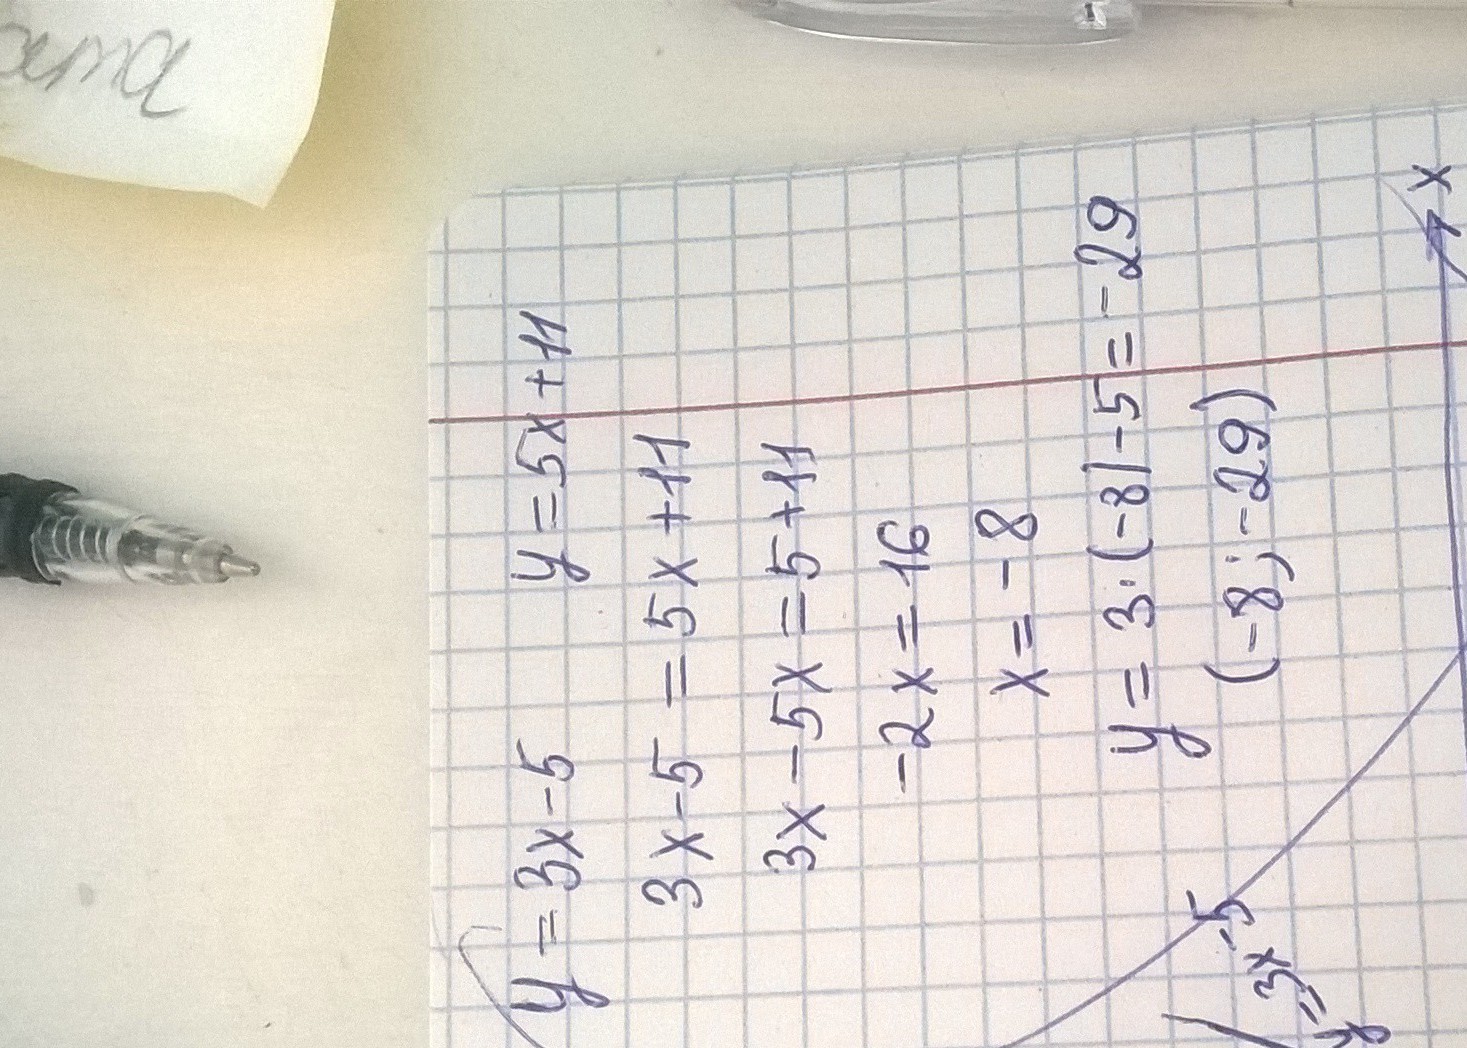 y = 3x - 5 y = 5x + 11
3x - 5 = 5x + 11
3x - 5x = 5 + 11
-2x = 16
x = -8
y = 3·(-8) - 5 = -29
(-8; -29)
x
y = 3x - 5